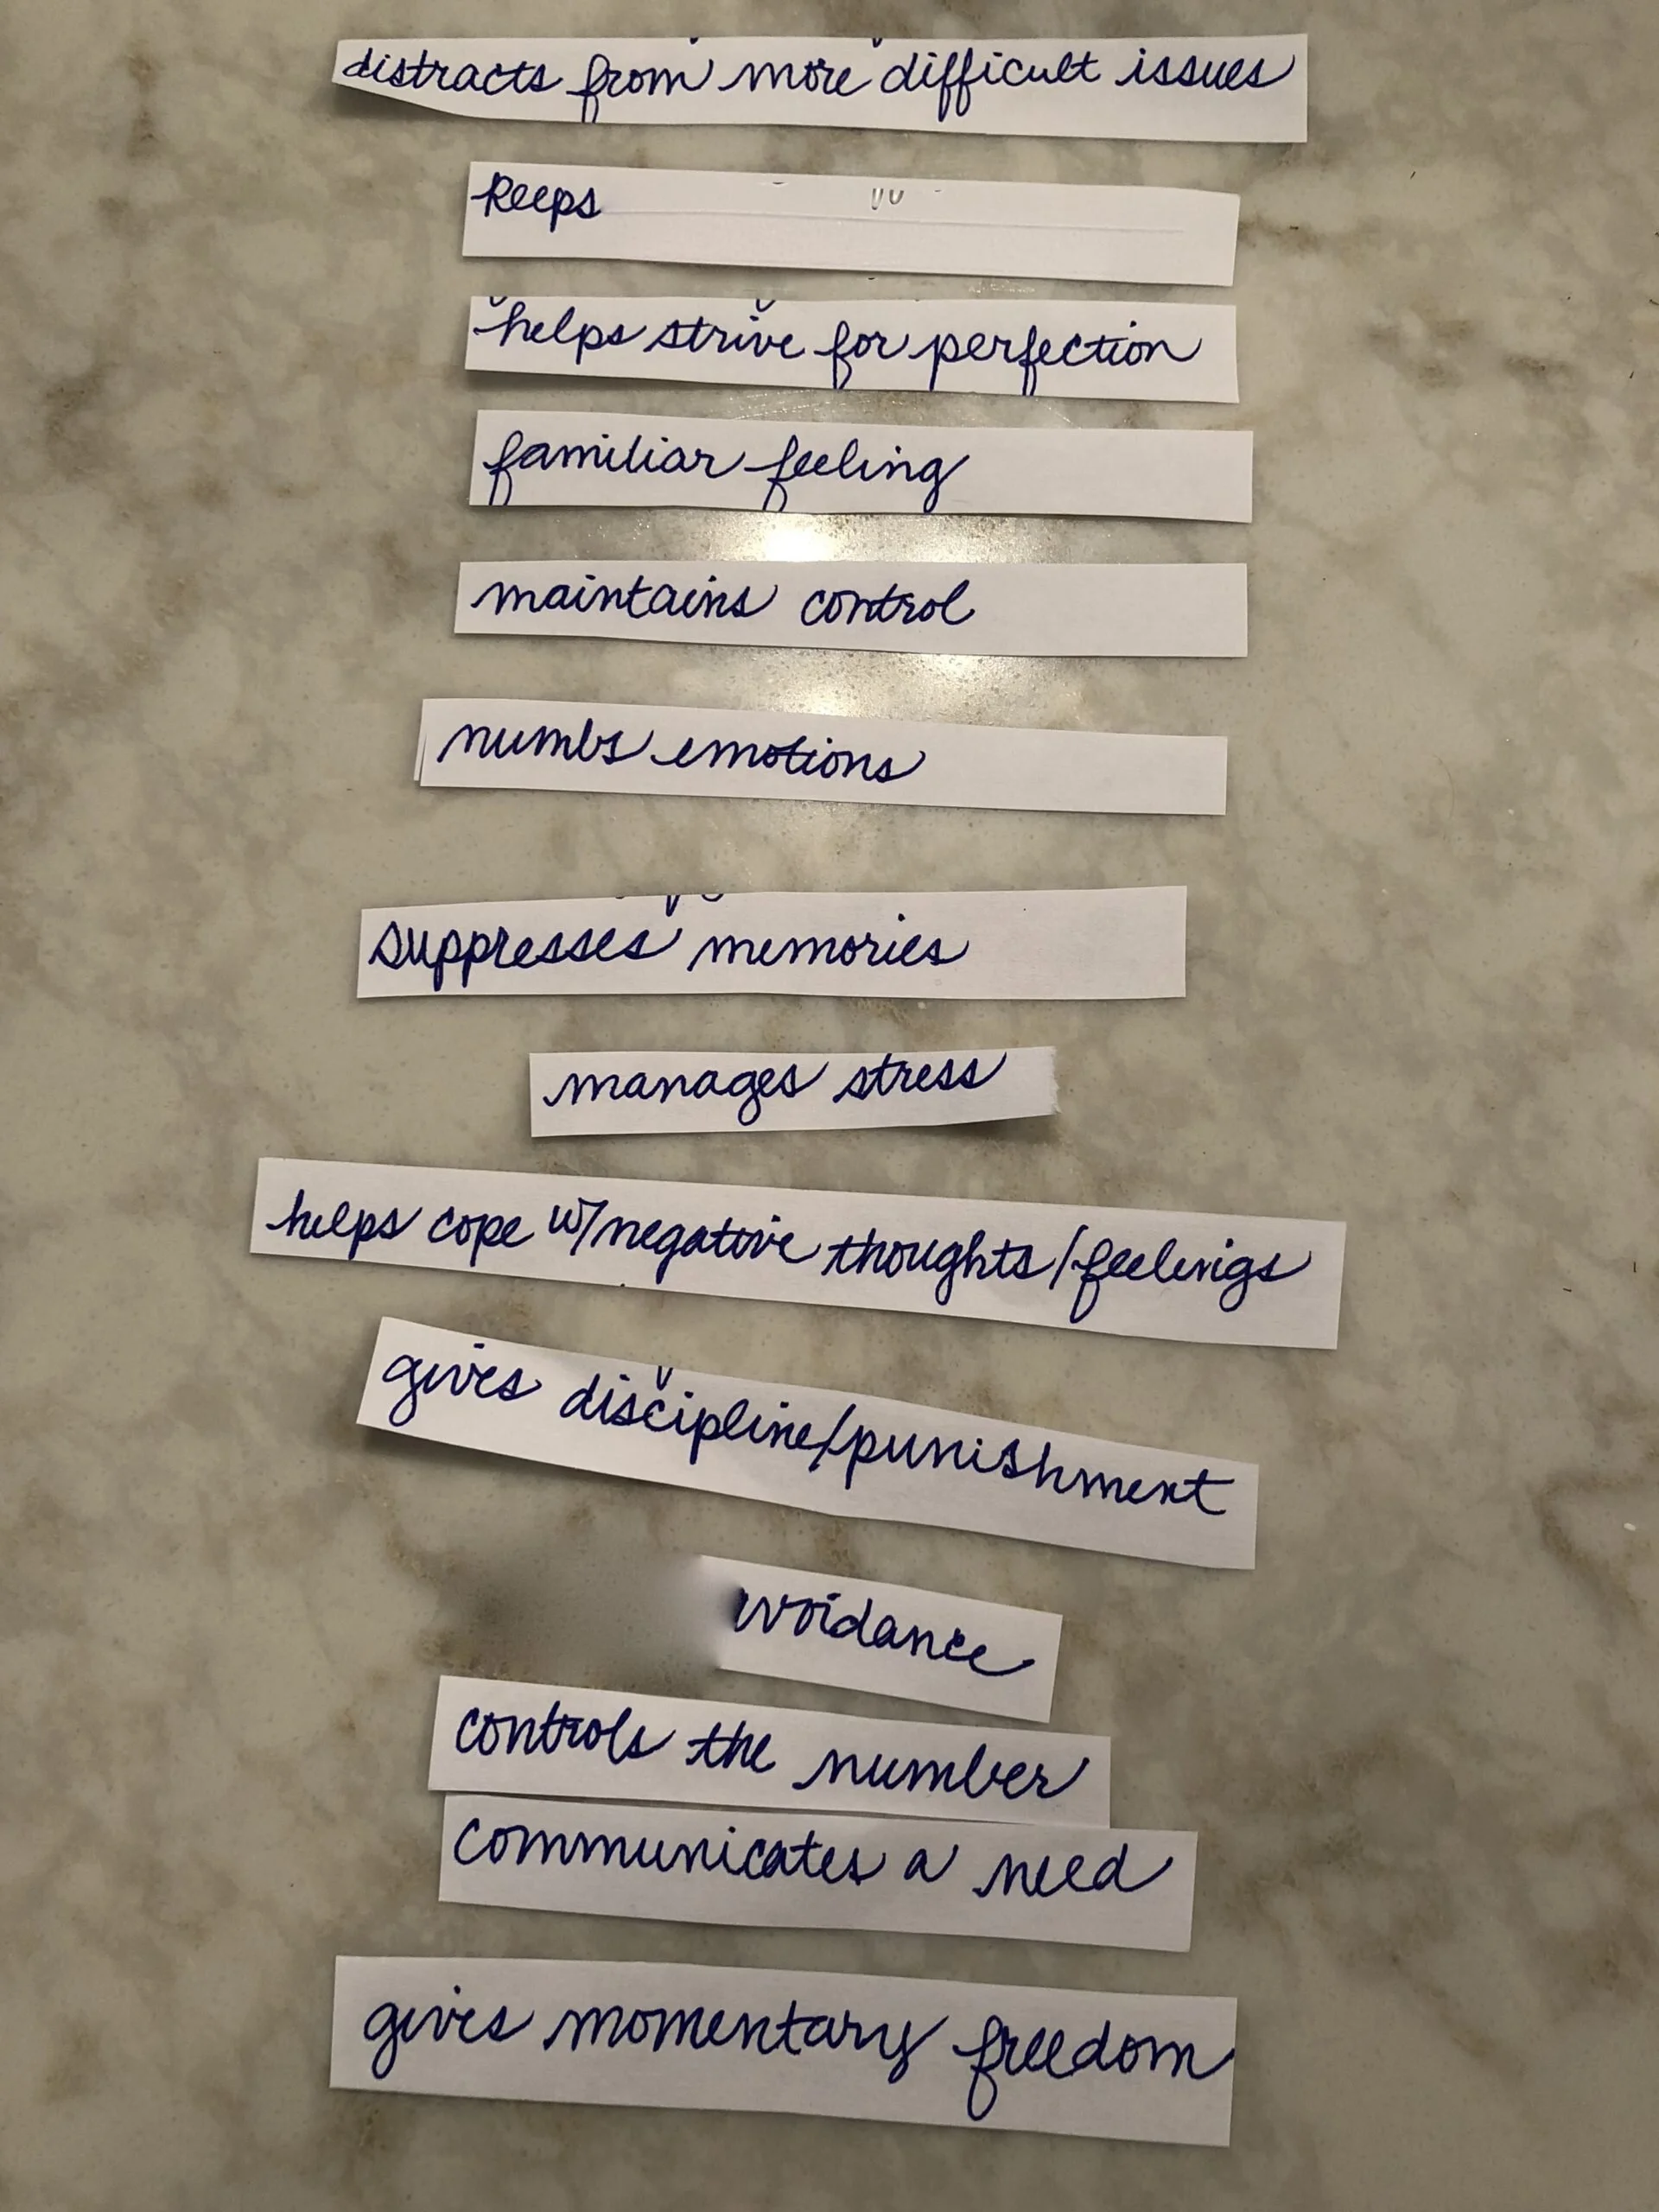 distracts from more difficult issues
keeps
helps strive for perfection
familiar feeling
maintains control
numbs emotions
suppresses memories
manages stress
helps cope w/negative thoughts/feelings
gives discipline/punishment
controls the number
communicates a need
gives momentary freedom